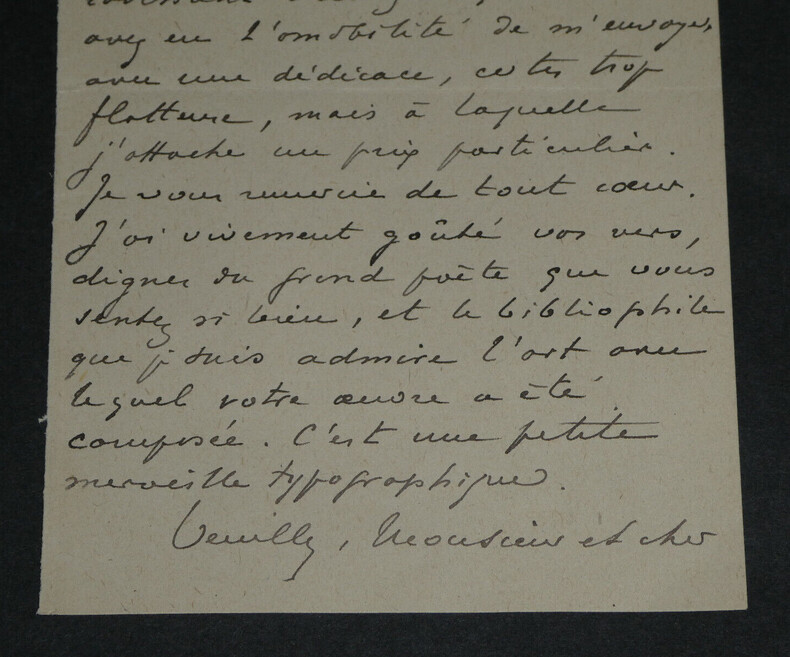 avez eu l'amabilité de m'envoyer,
avec une dédicace, certes trop
flatteuse, mais à laquelle
j'attache un prix particulier.
Je vous remercie de tout cœur.
J'ai vivement goûté vos vers,
dignes du grand poëte que vous
sentez si bien, et le bibliophile
que je suis admire l'art avec
lequel votre œuvre a été
composée. C'est une petite
merveille typographique.
Veuillez, Monsieur et cher